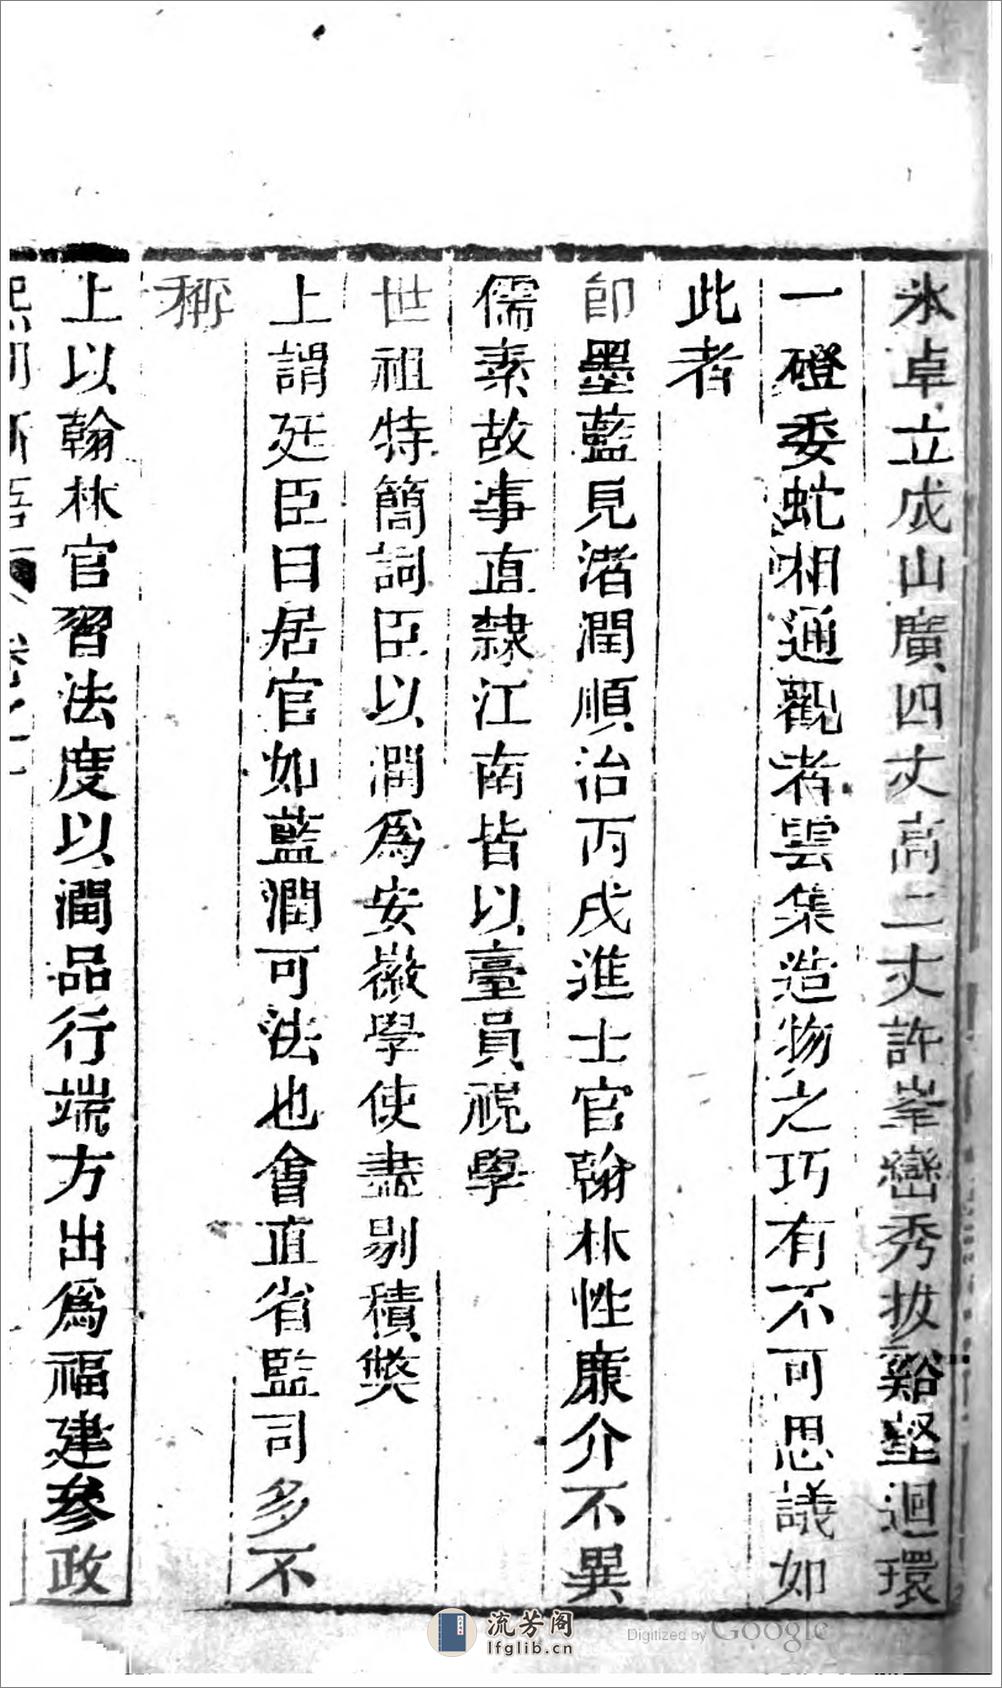 氷卓立成山廣四丈高二丈許峯巒秀拔谿壑迴環
一磴委虵相通觀者雲集造物之巧有不可思議如
此者
卽墨藍見渚潤順治丙戌進士官翰林性廉介不異
儒素故事直隸江南皆以臺員視學
世祖特簡詞臣以潤爲安徽學使盡剔積獘
上謂廷臣曰居官如藍潤可法也會直省監司多不
稱
上以翰林官習法度以潤品行端方出爲福建參政
熙朝新語 卷之一
流芳阁
lfglib.cn
Digitized by Google